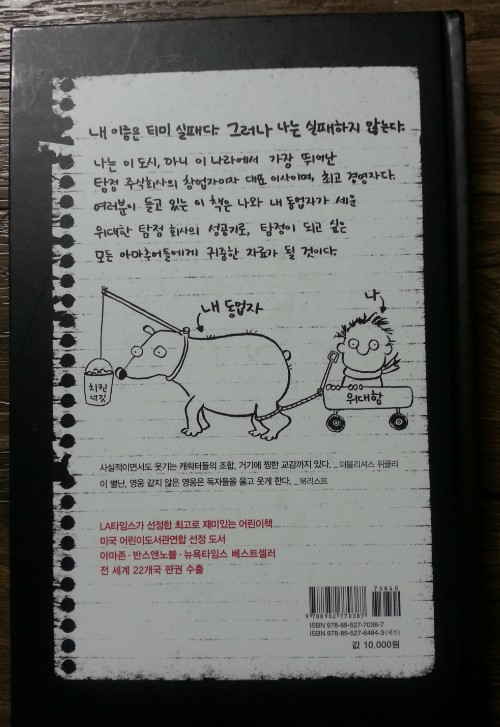 내 이름은 티미 실패다. 그러나 나는 실패하지 않는다.
나는 이 도시, 아니 이 나라에서 가장 뛰어난
탐정 주식회사의 창업자이자 대표 이사이며, 최고 경영자다.
여러분이 들고 있는 이 책은 나와 내 동업자가 세운
위대한 탐정 회사의 성공기로, 탐정이 되고 싶은
모든 아마추어들에게 귀중한 자료가 될 것이다.
내 동업자
나
치킨
너깃
위대함
사실적이면서도 웃기는 캐릭터들의 조합, 거기에 찡한 교감까지 있다. _ 퍼블리셔스 위클리
이 별난, 영웅 같지 않은 영웅은 독자들을 울고 웃게 한다. _ 북리스트
LA타임스가 선정한 최고로 재미있는 어린이책
미국 어린이도서관연합 선정 도서
아마존·반스앤노블·뉴욕타임스 베스트셀러
전 세계 22개국 판권 수출
73840
9 788952 770387
ISBN 978-89-527-7038-7
ISBN 978-89-527-6484-3(세트)
값 10,000원